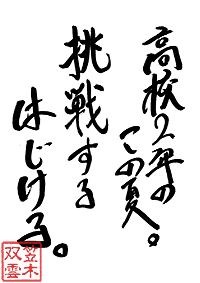 高校2年の
この夏。
挑戦する
はじける。
笠木
双雲